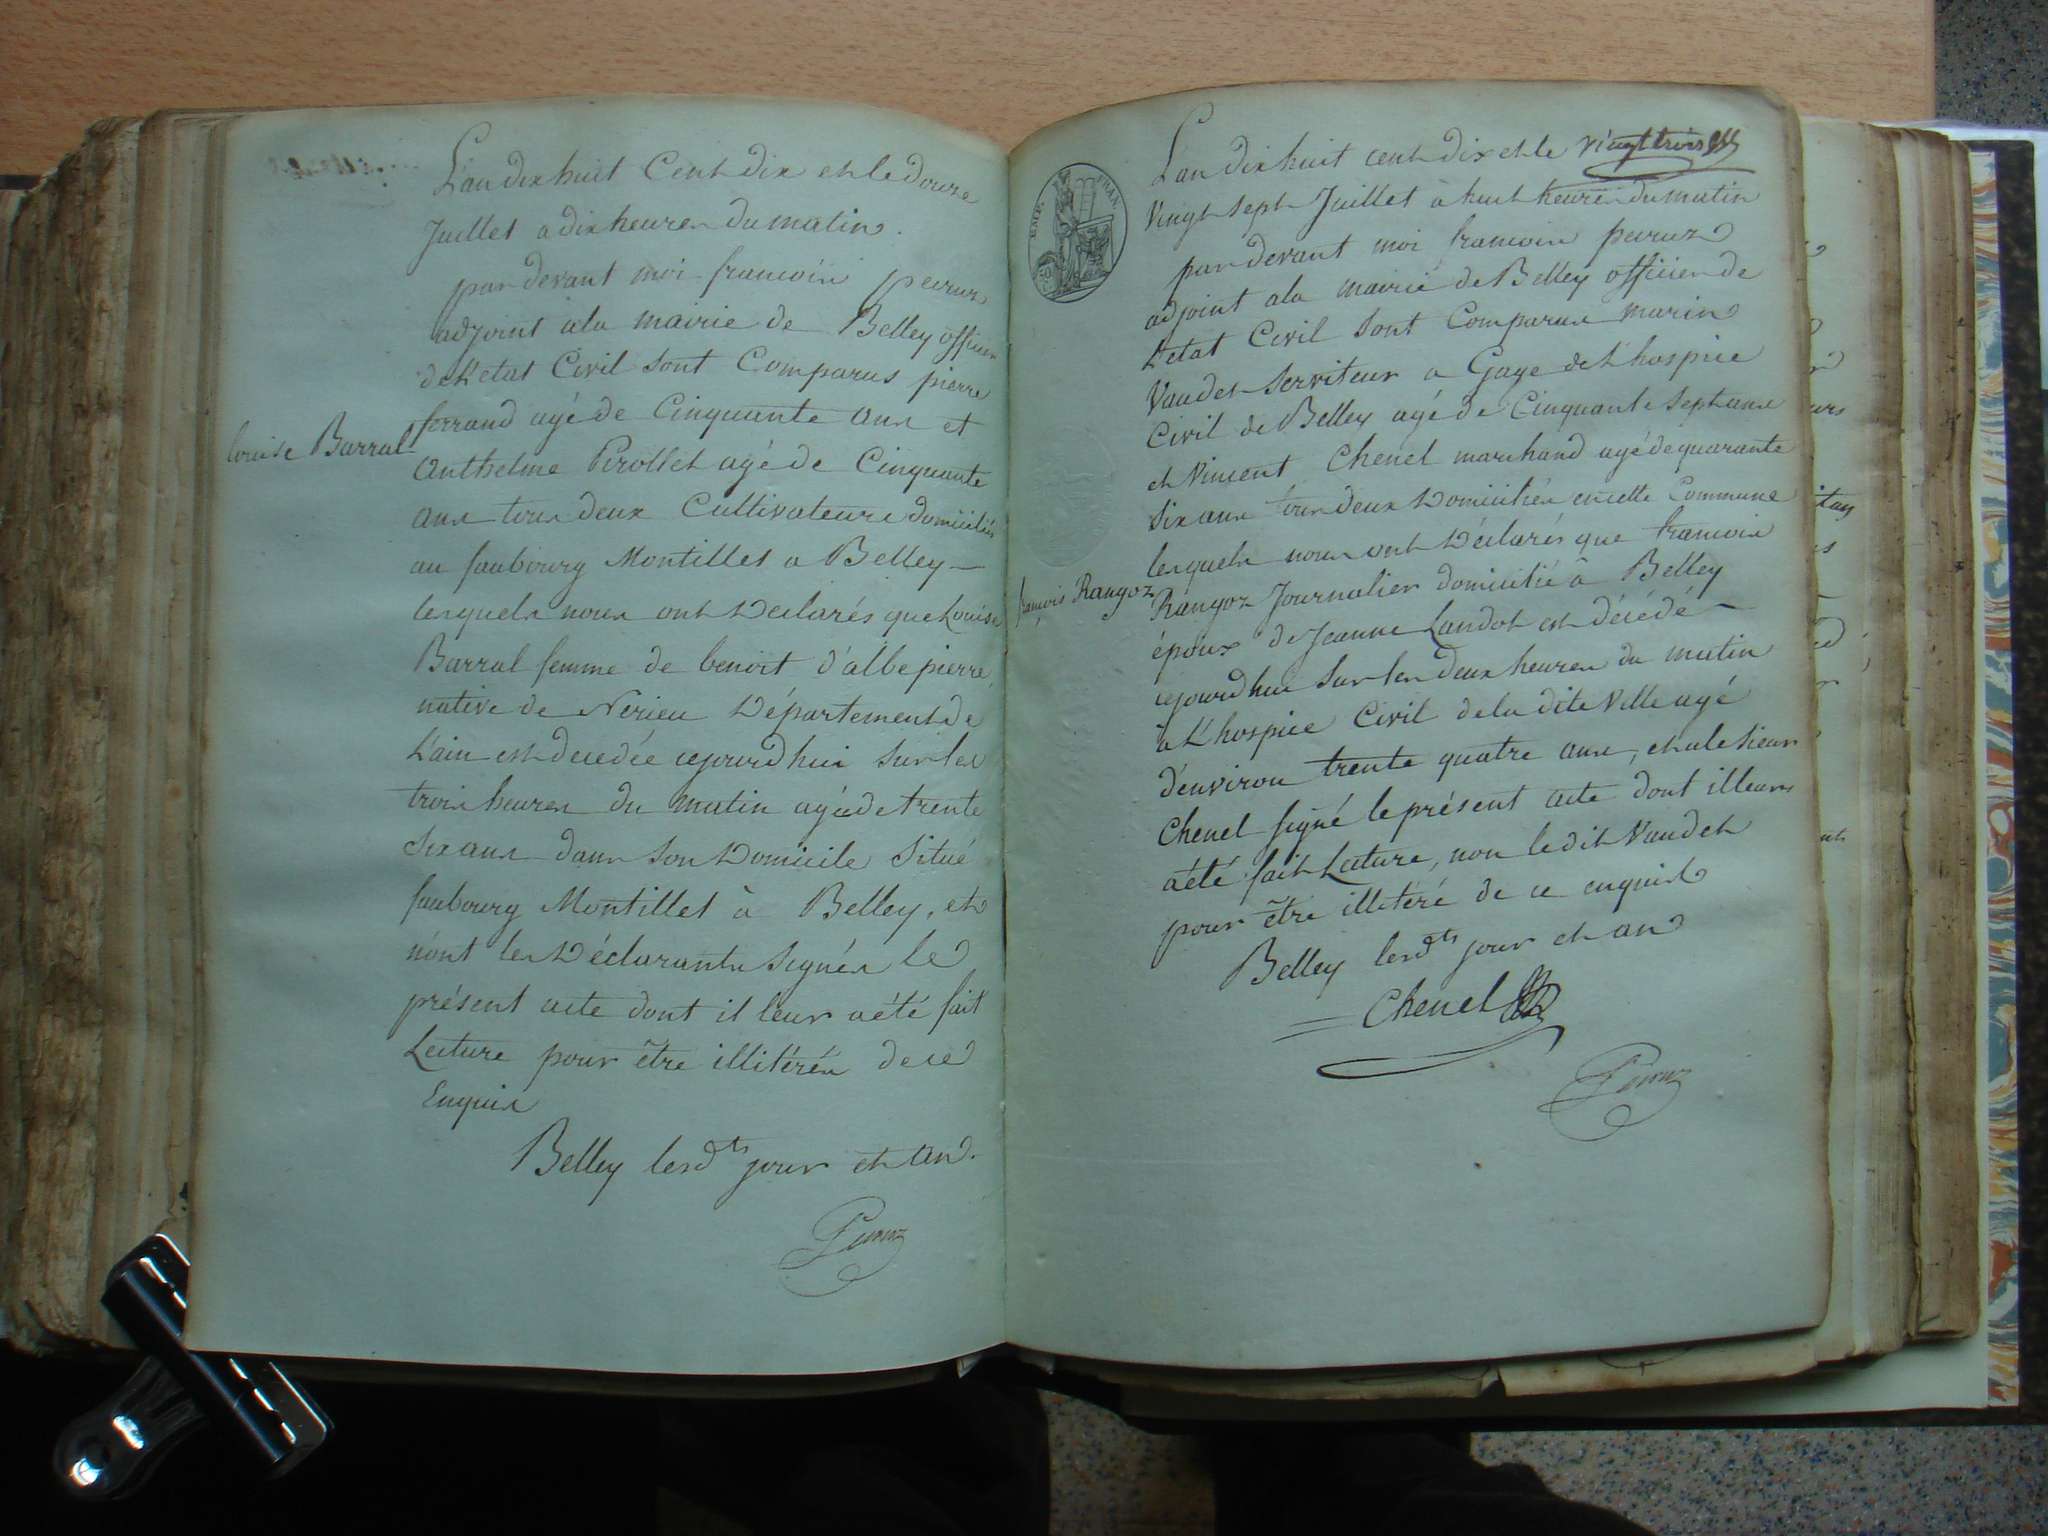 L'an dix huit Cent dix et le douze
Juillet a dix heures du matin.
par devant moi francois peeruz
adjoint a la mairie de Belley officier
de l'etat Civil sont Comparus pierre
ferrand agé de Cinquante ans et
louise Barral
anthelme Pirollet agé de Cinquante
ans tous deux Cultivateurs domiciliés
au faubourg Montillet a Belley —
lesquels nous ont Déclarés que Louise
Barral femme de benoit d'albepierre
native de Nerieu Département de
L'ain est decedée cejourd'hui sur les
trois heures du matin agée de trente
six ans dans son Domicile situé
faubourg Montillet à Belley, et
n'ont les Déclarants signés le
présent acte dont il leur a été fait
Lecture pour être illitérés de ce
Enquis
Belley lesdts jour et an.
L'an dix huit cent dix et le vingt trois
EMP. FRAN.
Vingt sept Juillet à huit heures du matin
par devant moi francois peeruz
adjoint a la mairie de Belley officier de
L'etat Civil sont Comparus marin
Vaudet serviteur a Gage de L'hospice
Civil de Belley agé de Cinquante sept ans
et Vincent Chenel marchand agé de quarante
six ans tous deux Domiciliés en cette Commune
lesquels nous ont Déclarés que francois
françois Rangoz
Rangoz Journalier domicilié à Belley
époux de Jeanne Landot est décédé —
cejourd'hui sur les deux heures du matin
à L'hospice Civil de la dite Ville agé
d'environ trente quatre ans, et a le sieur
Chenel signé le présent acte dont il leurs
a été fait Lecture, non le dit Vaudet
pour être illitéré de ce enquis
Belley lesdts jour et an
Chenel